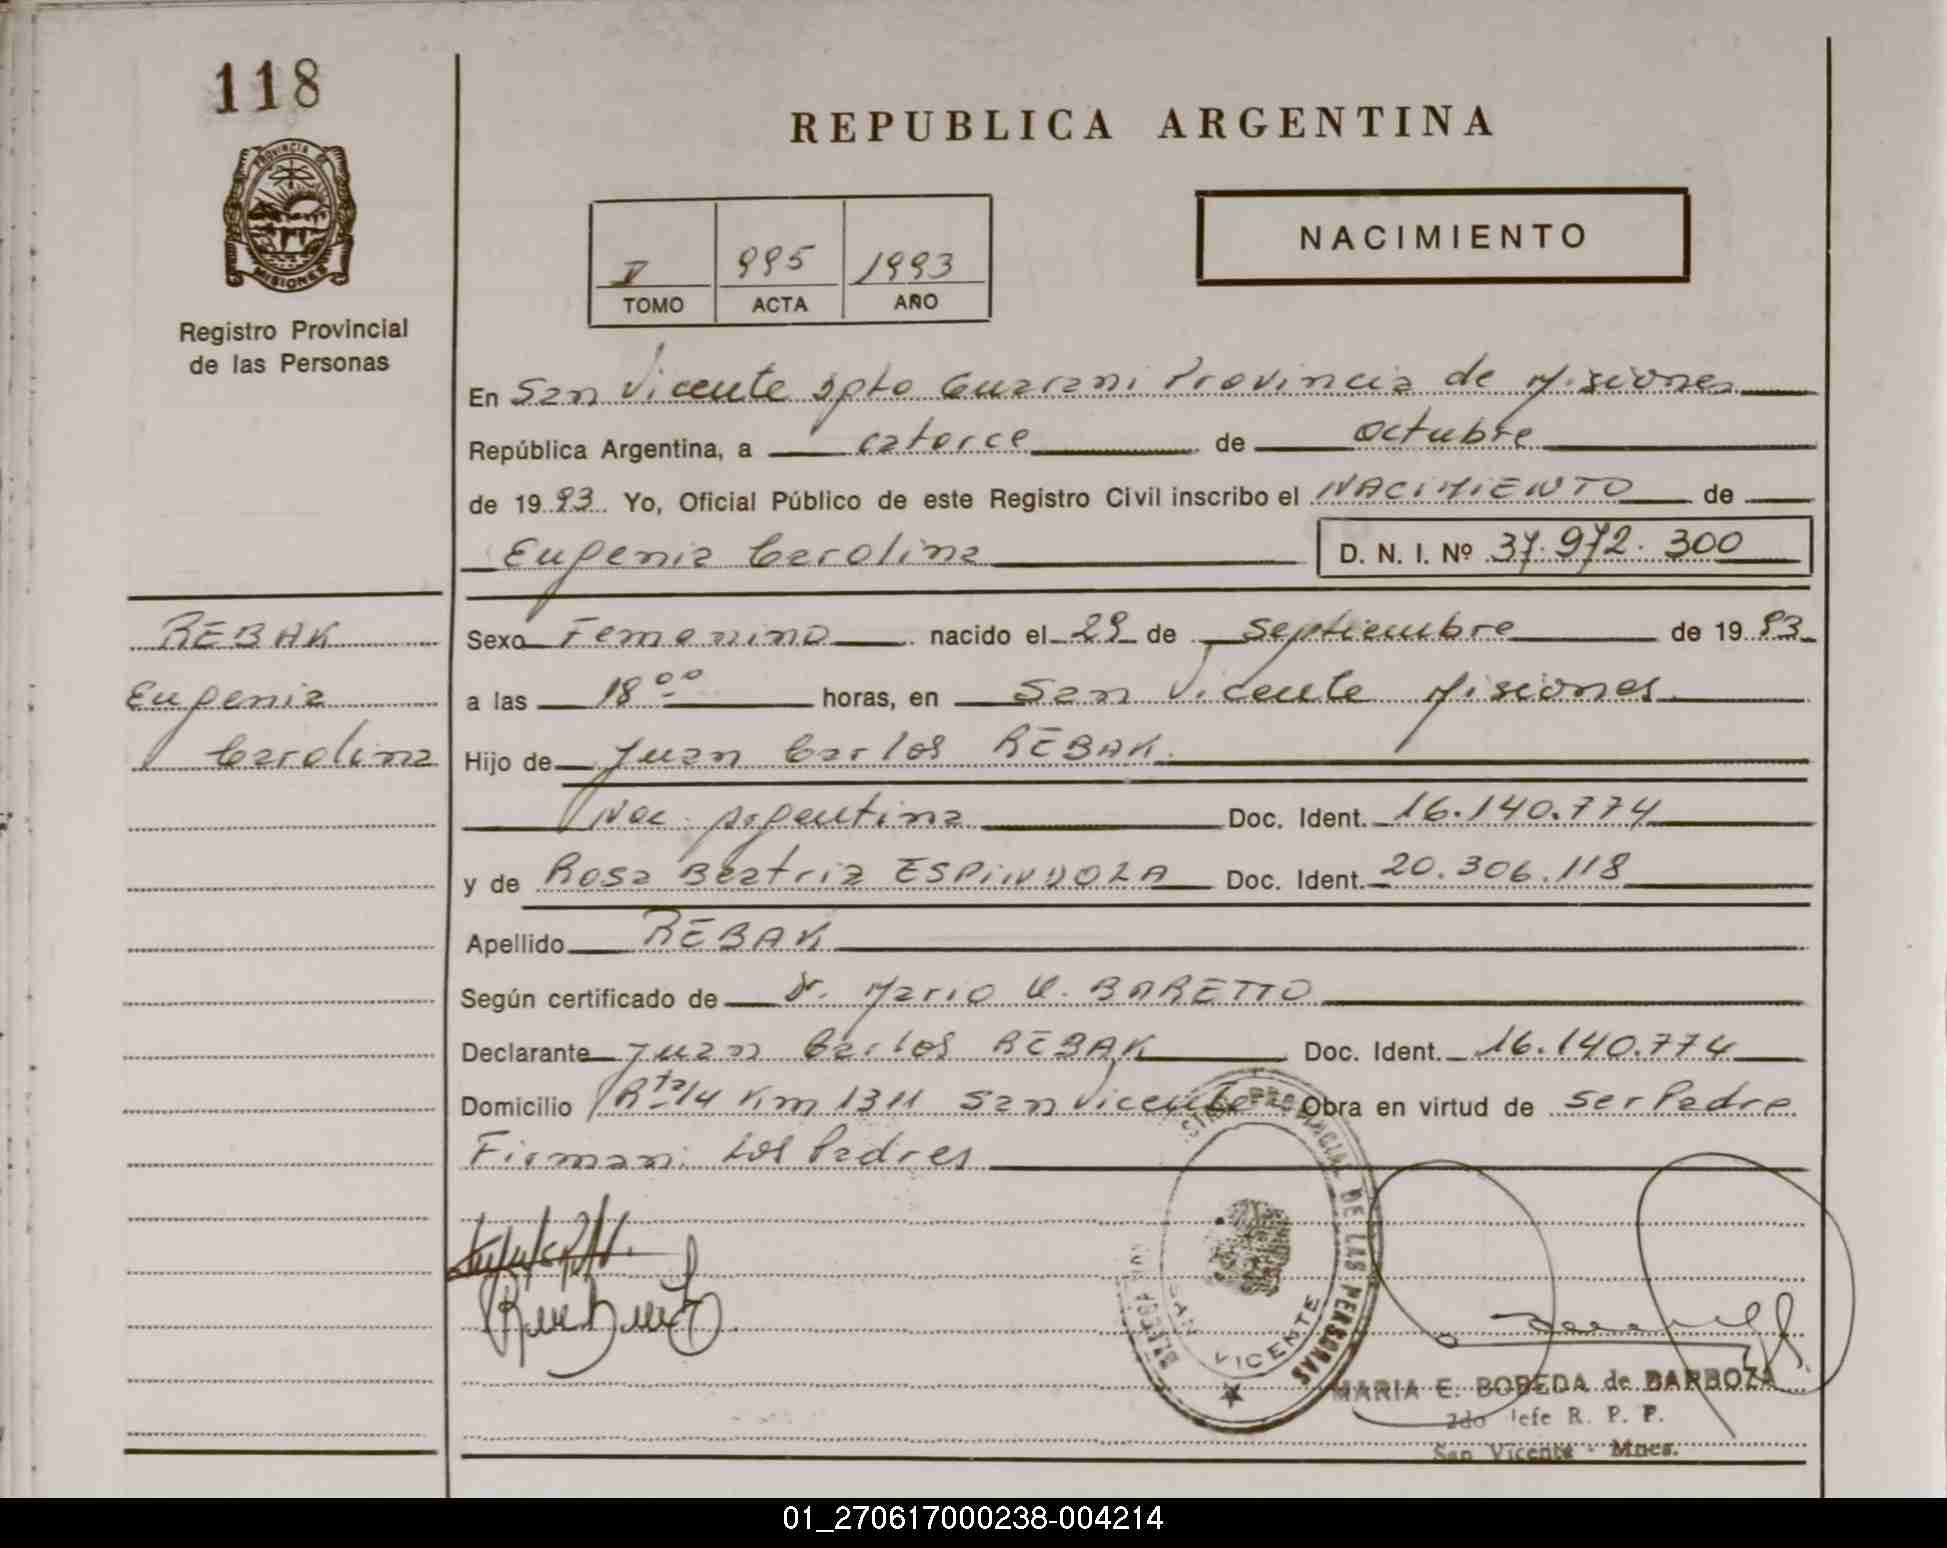 118
PROVINCIA DE
MISIONES
Registro Provincial
de las Personas
REPUBLICA ARGENTINA
NACIMIENTO
995 1993
TOMO ACTA AÑO
En San Vicente Dpto Guarani Provincia de Misiones
República Argentina, a catorce de octubre
de 1993 Yo, Oficial Público de este Registro Civil inscribo el NACIMIENTO de
Eugenia Carolina D. N. I. Nº 37.972.300
REBAK
Eugenia
Carolina
Sexo Femenino nacido el 29 de septiembre de 1993
a las 18 ºº horas, en San Vicente Misiones
Hijo de Juan Carlos REBAK
Nac. Argentina Doc. Ident. 16.140.774
y de Rosa Beatriz ESPINDOLA Doc. Ident. 20.306.118
Apellido REBAK
Según certificado de Dr. Mario V. BARETTO
Declarante Juan Carlos REBAK Doc. Ident. 16.140.774
Domicilio Rta 14 Km 1311 San Vicente Obra en virtud de ser Padre
Firman: Los Padres
PROVINCIAL DE LAS PERSONAS
SAN VICENTE
MARIA E. BOBEDA de BARBOZA
2do Jefe R. P. P.
San Vicente - Mnes.
01_270617000238-004214